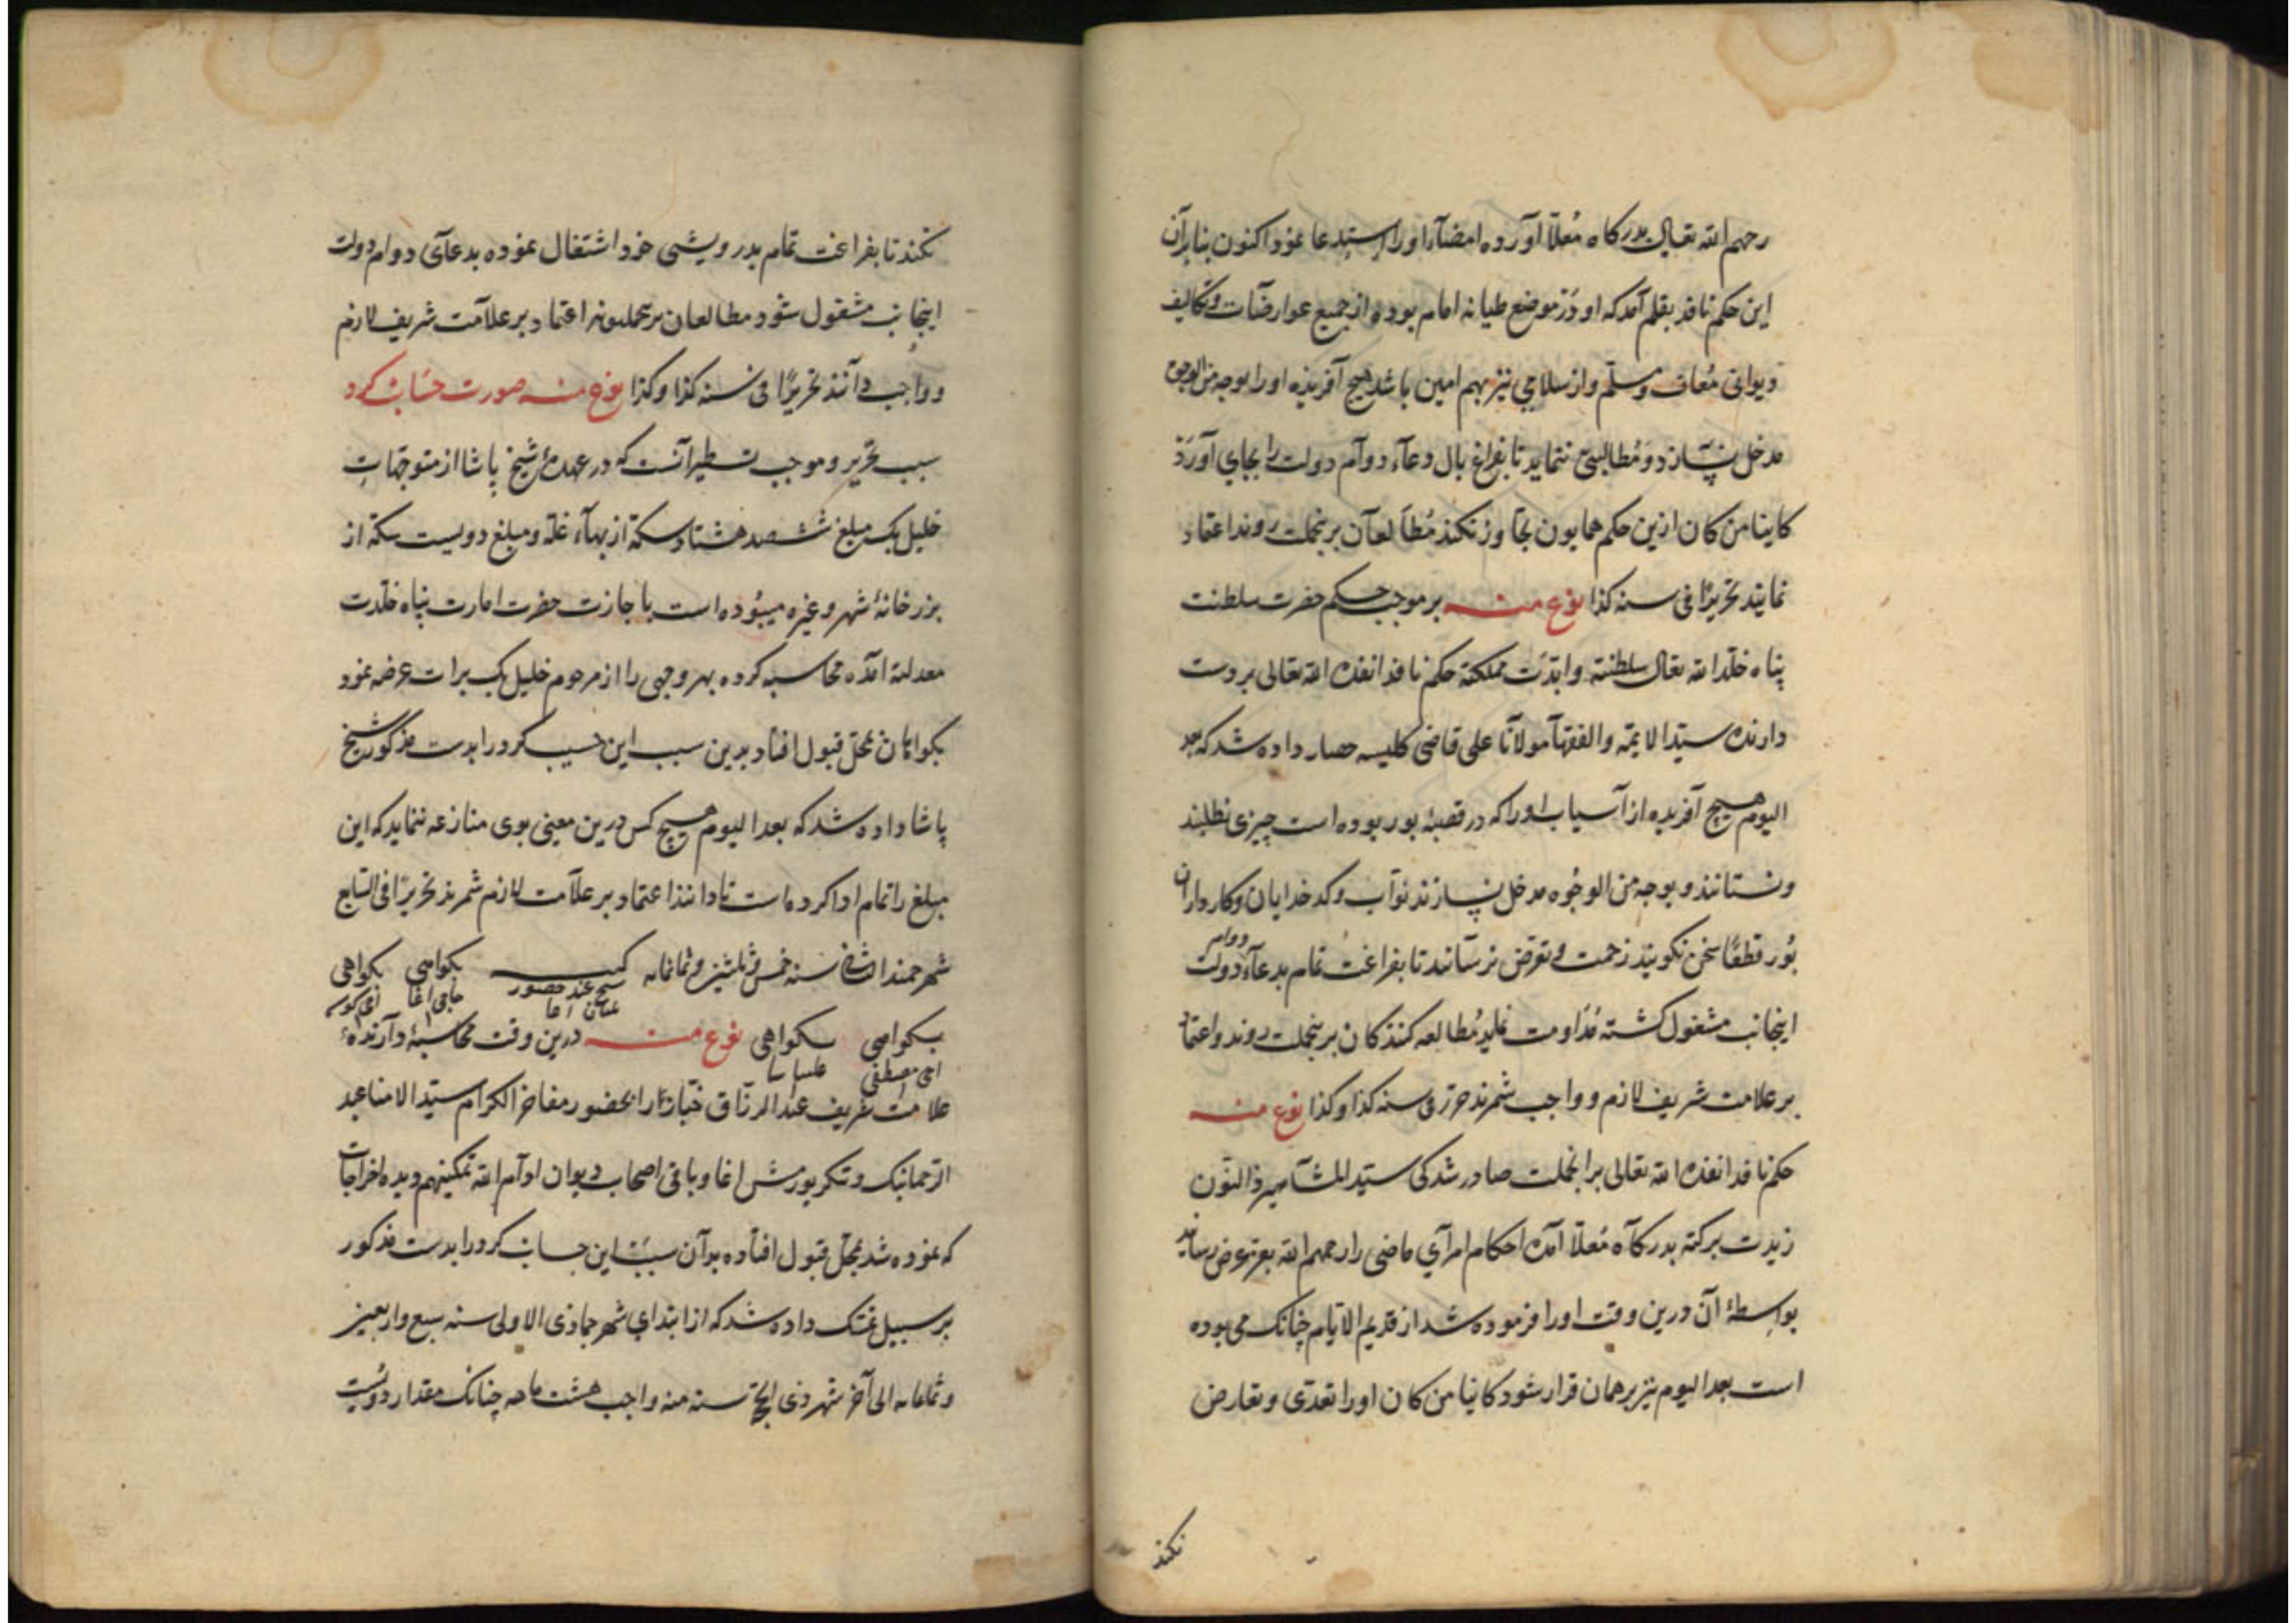 رحمهم الله تعالی بدرگاه مُعلّا آورده امضآء اورا استدعا نمود اکنون بنابرآن
این حکم نافذ بقلم آمد که او دَر موضع طیانه امام بوده از جمیع عوارضآت وتکالیف
دیوانی مُعاف ومسلّم واز سلامی نیز بهم امین باشد هیچ آفریده اورا بوجه من الوجوه
مدخل نسازد ومُطالبتی ننماید تا بفراغ بال دعآء دوآم دولت را بجای آورَد
کاینا من کان ازین حکم همایون تجاوز نکند مُطآلعآن برینجملت روند اعتماد
نمایند تحریرًا فی سنه کذا نوع منه بر موجب حکم حضرت سلطنت
پناه خلّد الله تعالی سلطنته وابدّت مملکته حکم نافذ انفذه الله تعالی بر دست
دارنده سیّد الایمّه والفقهآ مولآنا علی قاضی کلیسه حصار داده شد که بعد
الیوم هیچ آفریده از آسیاب اورا که در قصبهٔ بور بوده است چیزی نطلبند
ونستانند و بوجه من الوجُوه مدخل نسازند نوّاب وکدخدایان وکارداران
بُور قطعًا سخن نکویند زحمت وتعرّض نرسآنند تا بفراغت تمام بدعآء دوام دولت
اینجانب مشغول کشته مُدَاومت نماید مُطالعه کنندکان برینجملت روند واعتماد
بر علامت شریف لازم وواجب شمرند حرّر فی سنه کذا وکذا نوع منه
حکم نافذ انفذه الله تعالی برانجملت صادر شد کی سیّد المشآهیر ذالنّون
زیدت برکته بدرکآه مُعلّا آمده احکام امرآی ماضی را رحمهم الله بعزّ عرض رسانید
بواسطهٔ آن درین وقت اورا فرموده شد از قدیم الایّام چنانک می بوده
است بعد الیوم نیز بر همان قرار شود کاینا من کان اورا تعدّی وتعارض
نکند
نکند تا بفراغت تمام بدرویشی خود اشتغال نموده بدعآی دوام دولت
اینجانب مشغول شود مطالعان برینجملت روند اعتماد بر علآمت شریف لازم
وواجب دآنند تحریرًا فی سنه کذا وکذا نوع منه صورت حسَاب کرد
سبب تحریر وموجب تسطیر آنست که در عهدهٔ شیخ پاشا از متوجّهاتِ
خلیل بک مبلغ ششصد هشتاد سکّه از بهآء غلّه ومبلغ دویست سکّه از
بزرخانهٔ شهر وغیره میبُوده است باجازت حضرت امارت پناه خلّدت
معدلته آمده محاسبه کرده بهر وجهی را از مرحوم خلیل بک برات عرضه نمود
بکواهان بمحلّ قبول افتاد بدین سبب این حسیب کرد را بدست مذکور شیخ
پاشا داده شد که بعد الیوم هیچ کس درین معنی بوی منازعه ننماید که این
مبلغ را تمام ادا کرده است تا دانند اعتماد بر علآمت لازم شمرند تحریرًا فی السّابع
شهر جمند الثانی سنه خمس وثلثین وثمانمایه کتبـه بکواهی بکواهی
عند حضور عثمان اغا حاجی اغا اخی
بکواهی بکواهی نوع منه درین وقت محاسبهٔ دآرندهٔ
اخی مصطفی علیپاشا
علامت شریف عبد الرزّاق خبّاز را بحضور مفاخر الکرام سیّد الامنا عبد
الرّحمان بک وتنکر بورمش اغا وباقی اصحاب دیوان ادآم الله تمکینهم دیده اخراجات
که نموده شد بمحلّ قبول افتاده بوآن سبَب این حساب کرد را بدست مذکور
بر سبیل تمسّک داده شد که از ابتدای شهر جماذی الاولی سنه سبع واربعین
وثمانمایه الی آخر شهر ذی الحجّه سنه منه واجب هشت ماهه چنانک مقدار دویُست